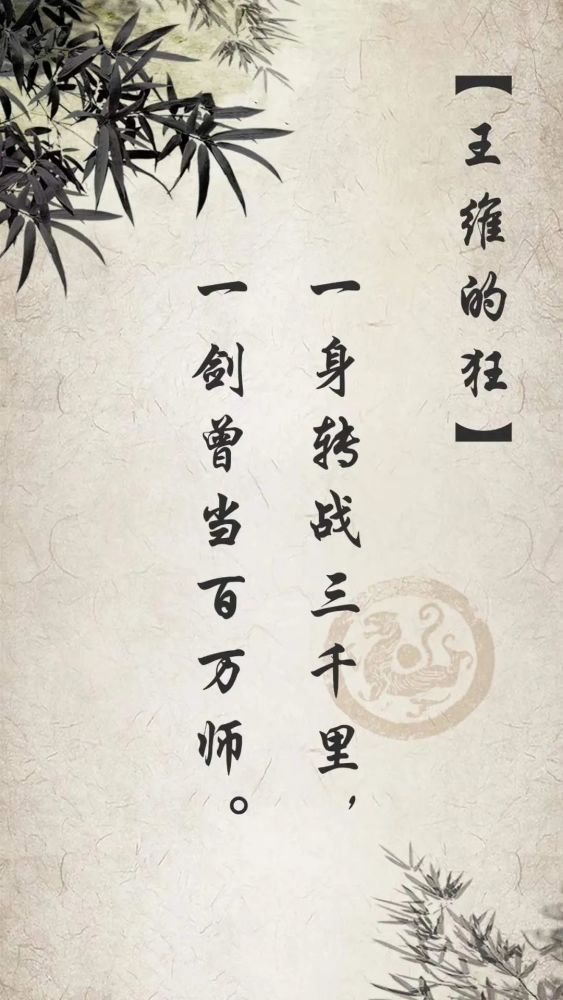 【王维的狂】
一身转战三千里，
一剑曾当百万师。